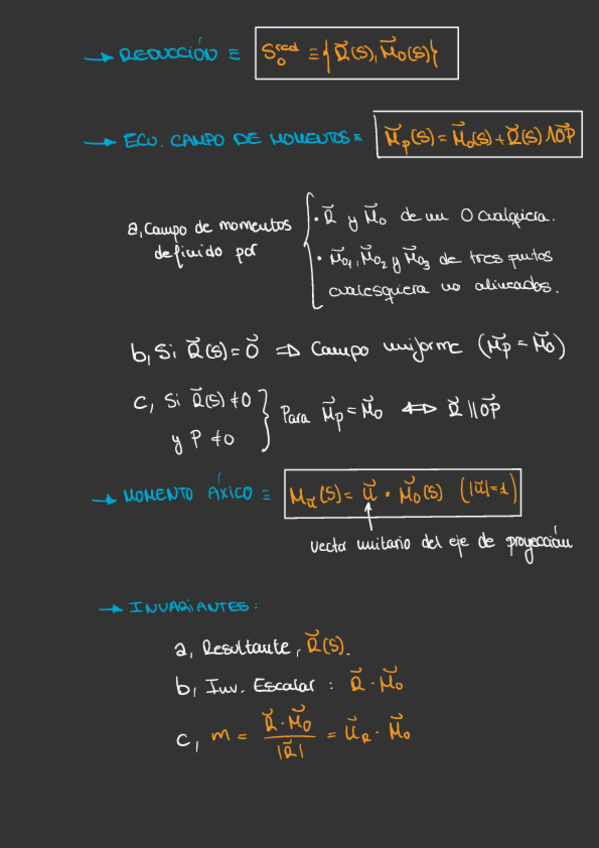 → REDUCCIÓN ≡ S₀ʳᵉᵈ ≡ {R⃗(S), M⃗₀(S)}
→ ECU. CAMPO DE MOMENTOS ≡ M⃗p(S) = M⃗₀(S) + R⃗(S) ∧ O⃗P
a, Campo de momentos definido por
· R⃗ y M⃗₀ de un O cualquiera.
· M⃗₀₁, M⃗₀₂ y M⃗₀₃ de tres puntos
cualesquiera no alineados.
b, Si R⃗(S) = 0⃗ ⇒ Campo uniforme (M⃗p = M⃗₀)
c, Si R⃗(S) ≠ 0
y P ≠ 0
Para M⃗p = M⃗₀ ⇔ R⃗ || O⃗P
→ MOMENTO ÁXICO ≡ Mᵤ(S) = u⃗ · M⃗₀(S) (|u⃗| = 1)
vector unitario del eje de proyección
→ INVARIANTES:
a, Resultante, R⃗(S).
b, Inv. Escalar : R⃗ · M⃗₀
c, m = R⃗ · M⃗₀ / |R⃗| = u⃗_R · M⃗₀